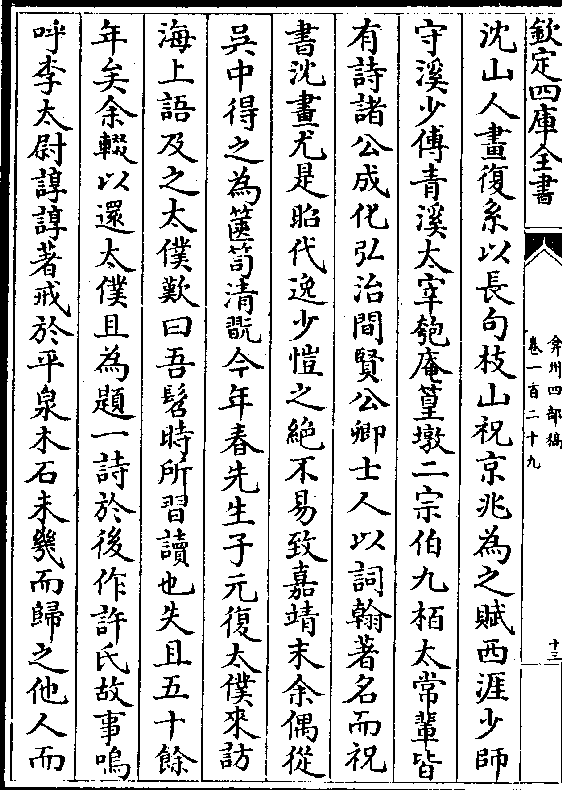 欽定四庫全書
弇州四部稿
卷一百二十九
十三
沈山人畫復系以長句枝山祝京兆為之賦西涯少師
守溪少傅青溪太宰匏庵篁墩二宗伯九栢太常輩皆
有詩諸公成化弘治間賢公卿士人以詞翰著名而祝
書沈畫尤是昭代逸少愷之絶不易致嘉靖末余偶從
吳中得之為篋笥清翫今年春先生子元復太僕來訪
海上語及之太僕歎曰吾髫時所習讀也失且五十餘
年矣余輟以還太僕且為題一詩於後作許氏故事嗚
呼李太尉諄諄著戒於平泉木石未幾而歸之他人而